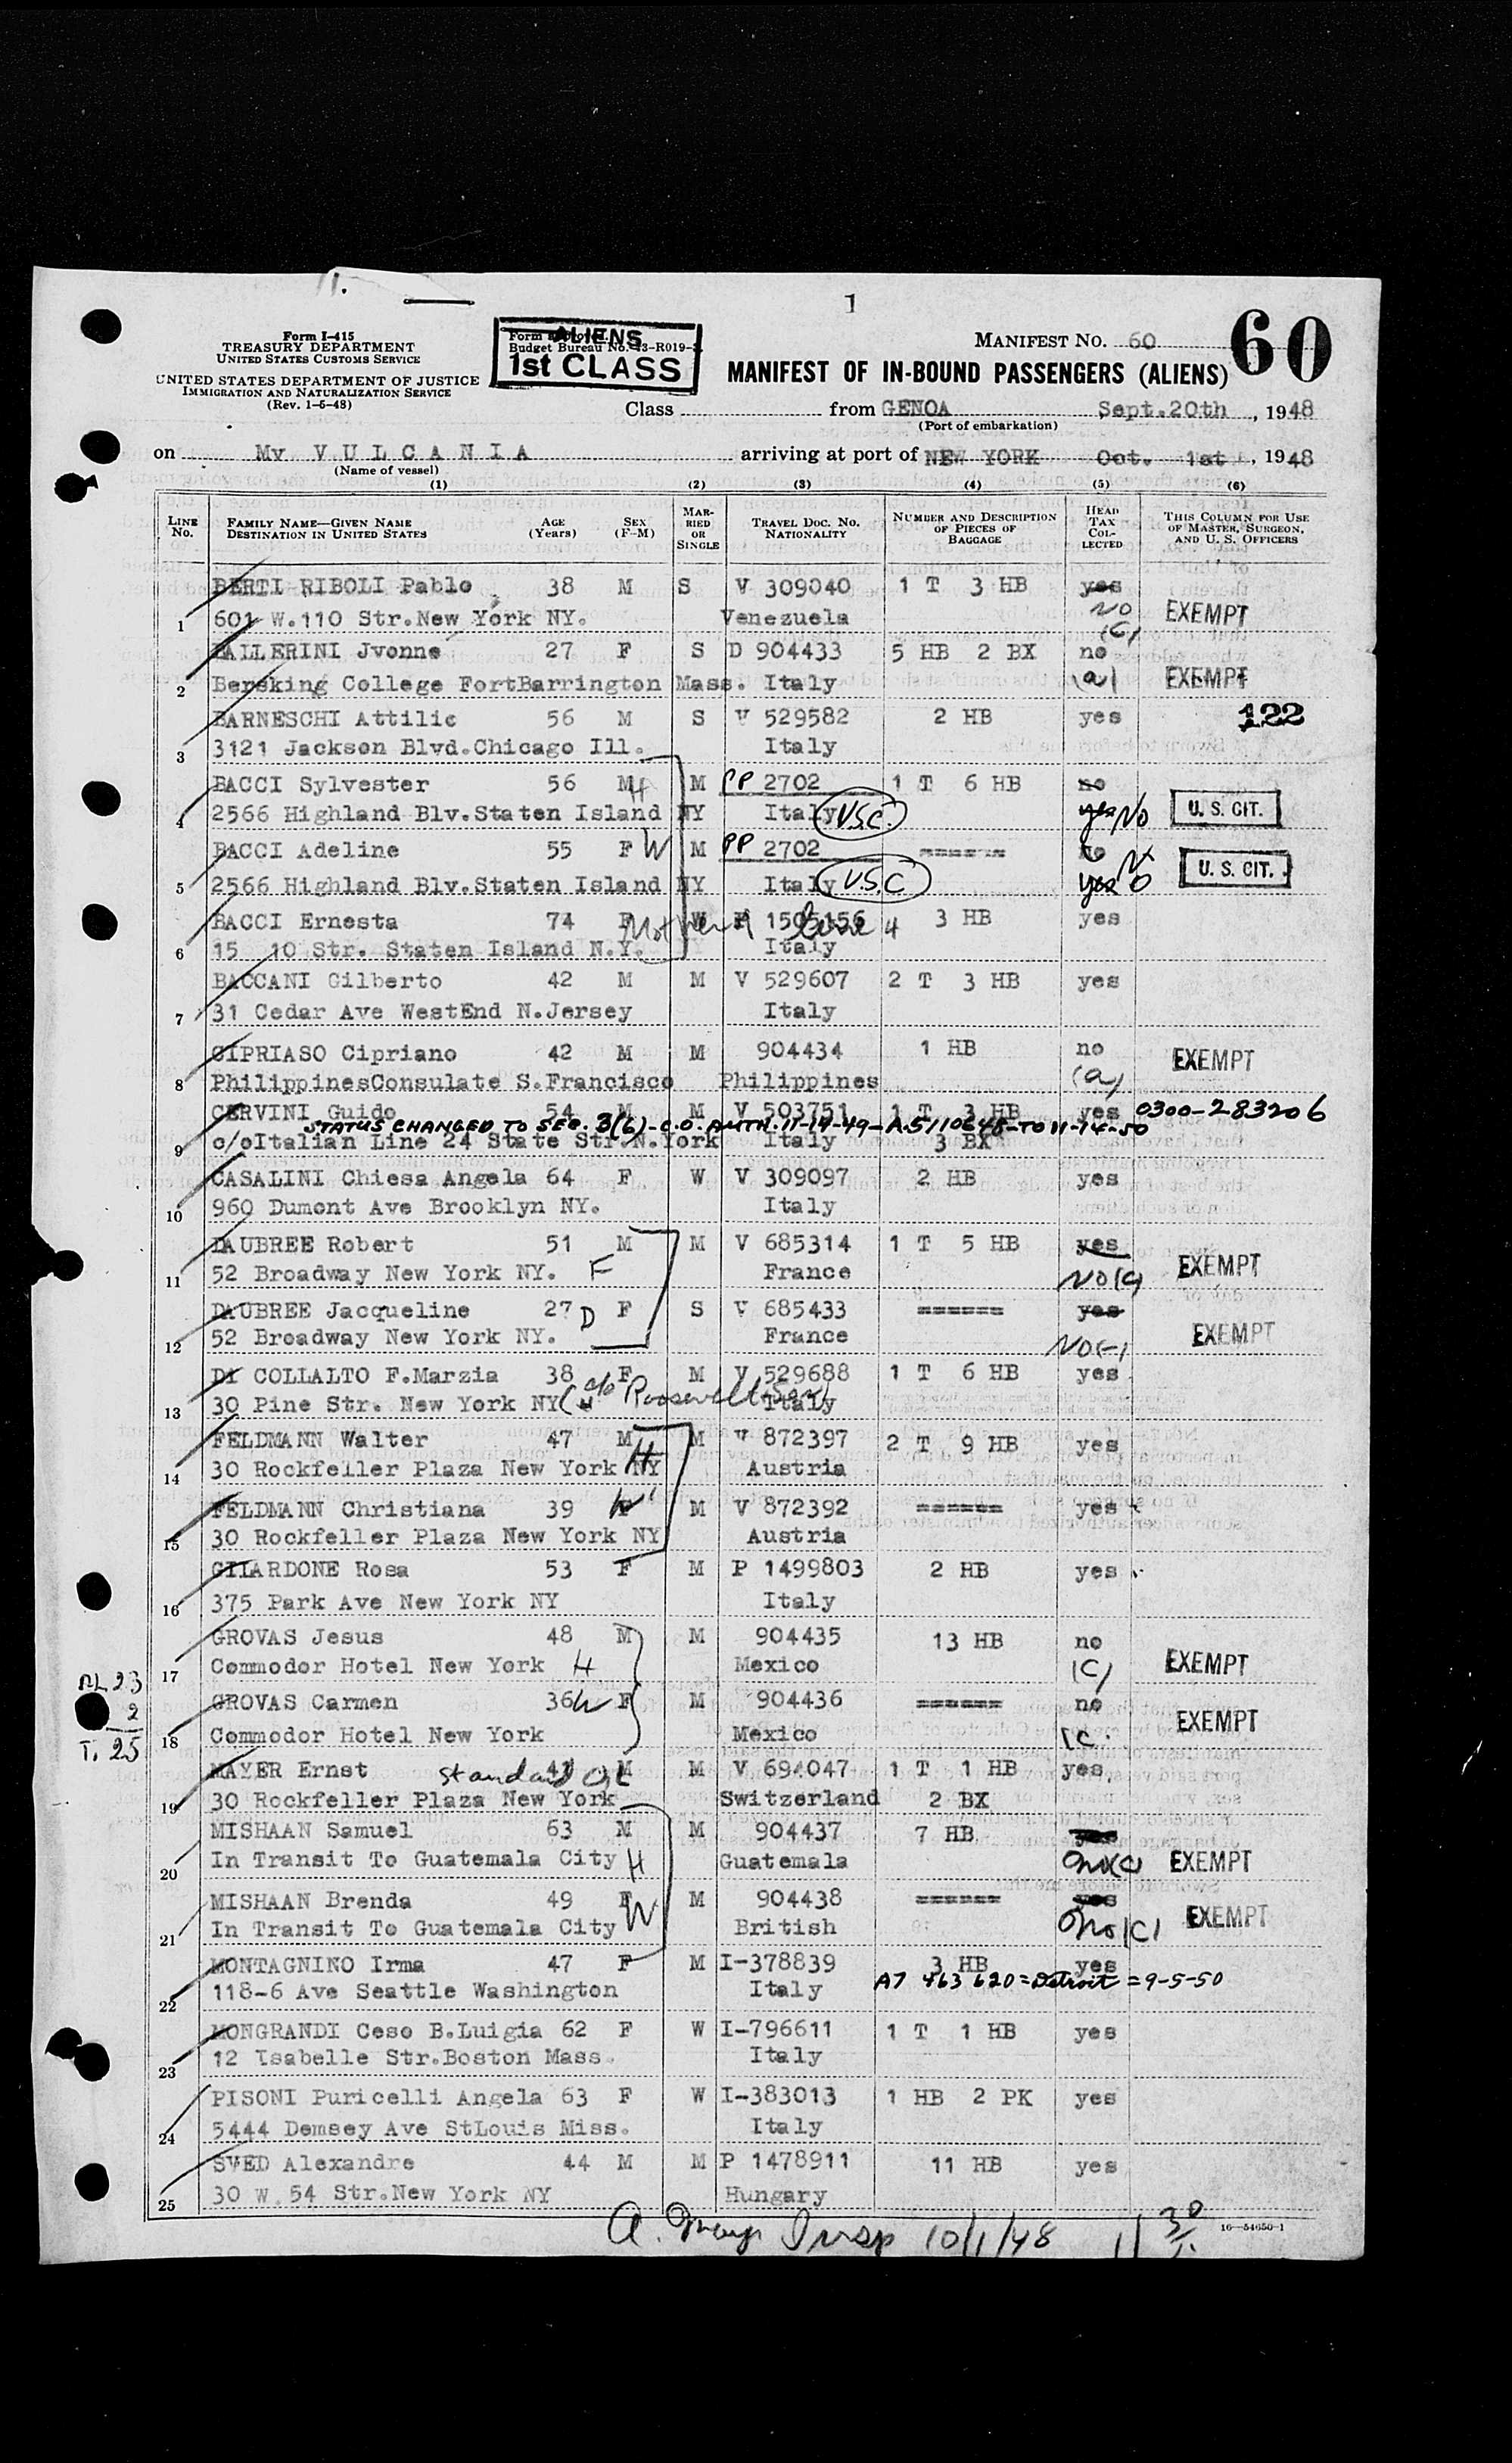 11.
1
Form I-415
TREASURY DEPARTMENT
UNITED STATES CUSTOMS SERVICE
UNITED STATES DEPARTMENT OF JUSTICE
IMMIGRATION AND NATURALIZATION SERVICE
(Rev. 1-5-48)
Budget Bureau No. 43-R019-
ALIENS
1st CLASS
MANIFEST No. 60
60
MANIFEST OF IN-BOUND PASSENGERS (ALIENS)
Class from GENOA Sept.20th, 1948
(Port of embarkation)
on Mv V U L C A N I A arriving at port of NEW YORK Oct. 1st, 1948
(Name of vessel)
(1) (2) (3) (4) (5) (6)
LINE No. FAMILY NAME—GIVEN NAME DESTINATION IN UNITED STATES AGE (Years) SEX (F-M) MARRIED OR SINGLE TRAVEL DOC. No. NATIONALITY NUMBER AND DESCRIPTION OF PIECES OF BAGGAGE HEAD TAX COLLECTED THIS COLUMN FOR USE OF MASTER, SURGEON, AND U. S. OFFICERS
BERTI RIBOLI Pablo 38 M S V 309040 1 T 3 HB yes
1 601 W.110 Str.New York NY. Venezuela NO (C) EXEMPT
BALLERINI Jvonne 27 F S D 904433 5 HB 2 BX no
2 Bersking College FortBarrington Mass. Italy (a) EXEMPT
BARNESCHI Attilio 56 M S V 529582 2 HB yes 122
3 3121 Jackson Blvd.Chicago Ill. Italy
BACCI Sylvester 56 M H M PP 2702 1 T 6 HB no
4 2566 Highland Blv.Staten Island NY Italy U.S.C. yes No U. S. CIT.
BACCI Adeline 55 F W M PP 2702 ====== no
5 2566 Highland Blv.Staten Island NY Italy U.S.C yes No U. S. CIT.
BACCI Ernesta 74 F W P 1505156 3 HB yes
Mother of line 4
6 15 10 Str. Staten Island N.Y. Italy
BACCANI Gilberto 42 M M V 529607 2 T 3 HB yes
7 31 Cedar Ave WestEnd N.Jersey Italy
CIPRIASO Cipriano 42 M M 904434 1 HB no
8 PhilippinesConsulate S.Francisco Philippines (a) EXEMPT
CERVINI Guido 54 M M V 503751 1 T 3 HB yes 0300-283206
STATUS CHANGED TO SEC. 3(6)-C.O. AUTH. 11-14-49-A-5110648-TO 11-14-50
9 c/oItalian Line 24 State Str.N.York Italy 3 BX
CASALINI Chiesa Angela 64 F W V 309097 2 HB yes
10 960 Dumont Ave Brooklyn NY. Italy
DAUBREE Robert 51 M M V 685314 1 T 5 HB yes
11 52 Broadway New York NY. F France NO(C) EXEMPT
DAUBREE Jacqueline 27 D F S V 685433 ====== yes
12 52 Broadway New York NY. France NO(-) EXEMPT
DI COLLALTO F.Marzia 38 F M V 529688 1 T 6 HB yes
13 30 Pine Str. New York NY (c/o Roosevelt Italy
FELDMANN Walter 47 M M V 872397 2 T 9 HB yes
14 30 Rockfeller Plaza New York NY H Austria
FELDMANN Christiana 39 F W M V 872392 ====== yes
15 30 Rockfeller Plaza New York NY Austria
GILARDONE Rosa 53 F M P 1499803 2 HB yes
16 375 Park Ave New York NY Italy
GROVAS Jesus 48 M M 904435 13 HB no
17 Commodor Hotel New York H Mexico (C) EXEMPT
AL 23
2
T. 25
GROVAS Carmen 36 W F M 904436 ====== no
18 Commodor Hotel New York Mexico (C. EXEMPT
MAYER Ernst 41 M M V 694047 1 T 1 HB yes
Standard Oil
19 30 Rockfeller Plaza New York Switzerland 2 BX
MISHAAN Samuel 63 M M 904437 7 HB yes
20 In Transit To Guatemala City H Guatemala no(C) EXEMPT
MISHAAN Brenda 49 F M 904438 ====== yes
21 In Transit To Guatemala City W British no(C) EXEMPT
MONTAGNINO Irma 47 F M I-378839 3 HB yes
A7 463 620=Detroit=9-5-50
22 118-6 Ave Seattle Washington Italy
MONGRANDI Ceso B.Luigia 62 F W I-796611 1 T 1 HB yes
23 12 Isabelle Str.Boston Mass. Italy
PISONI Puricelli Angela 63 F W I-383013 1 HB 2 PK yes
24 5444 Demsey Ave StLouis Miss. Italy
SVED Alexandre 44 M M P 1478911 11 HB yes
25 30 W.54 Str.New York NY Hungary
Insp 10/1/48
16—54650-1